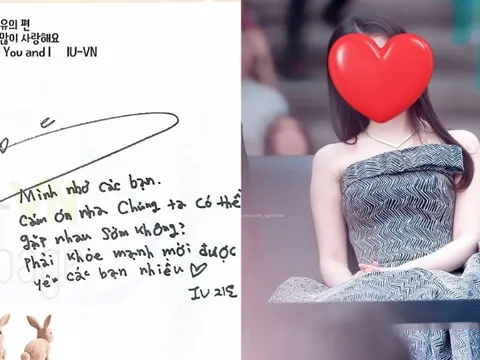 유의 편
많이 사랑해요
You and I IU-VN
Mình nhớ các bạn.
Cảm ơn nha Chúng ta có thể
gặp nhau sớm không?
Phải khỏe mạnh mới được
yêu các bạn nhiều ♡
IU 지은